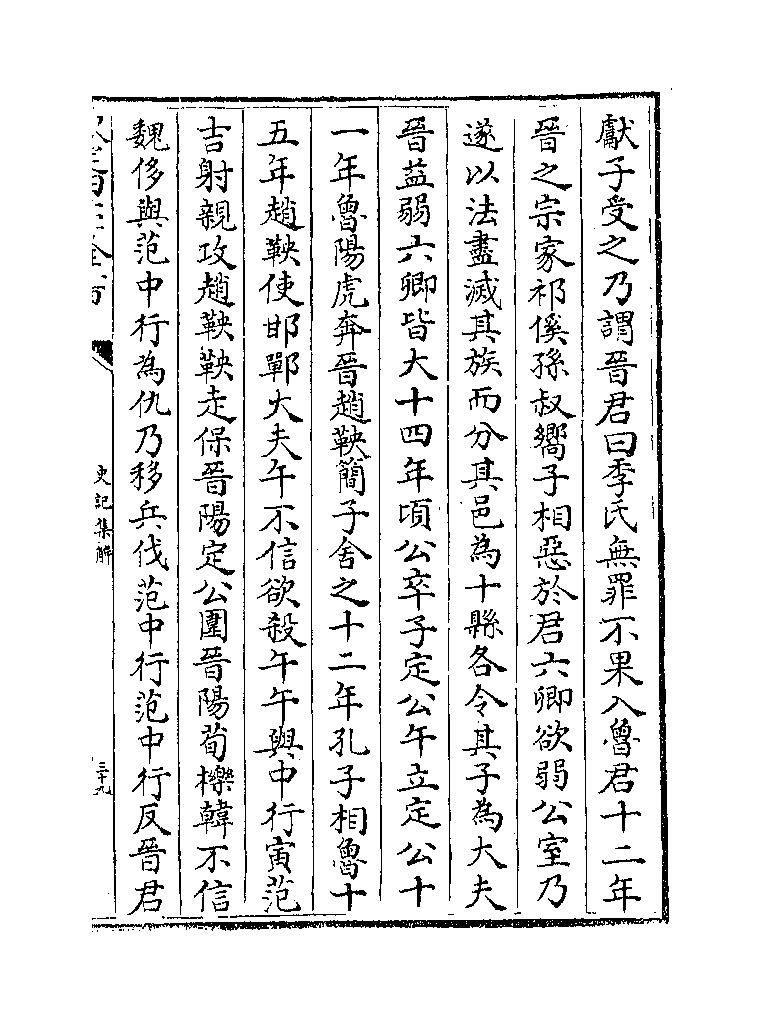 獻子受之乃謂晉君曰季氏無罪不果入魯君十二年
晉之宗家祁傒孫叔嚮子相惡於君六卿欲弱公室乃
遂以法盡滅其族而分其邑為十縣各令其子為大夫
晉益弱六卿皆大十四年頃公卒子定公午立定公十
一年魯陽虎奔晉趙鞅簡子舍之十二年孔子相魯十
五年趙鞅使邯鄲大夫午不信欲殺午午與中行寅范
吉射親攻趙鞅鞅走保晉陽定公圍晉陽荀櫟韓不信
魏侈與范中行為仇乃移兵伐范中行范中行反晉君
史記集解
三十九